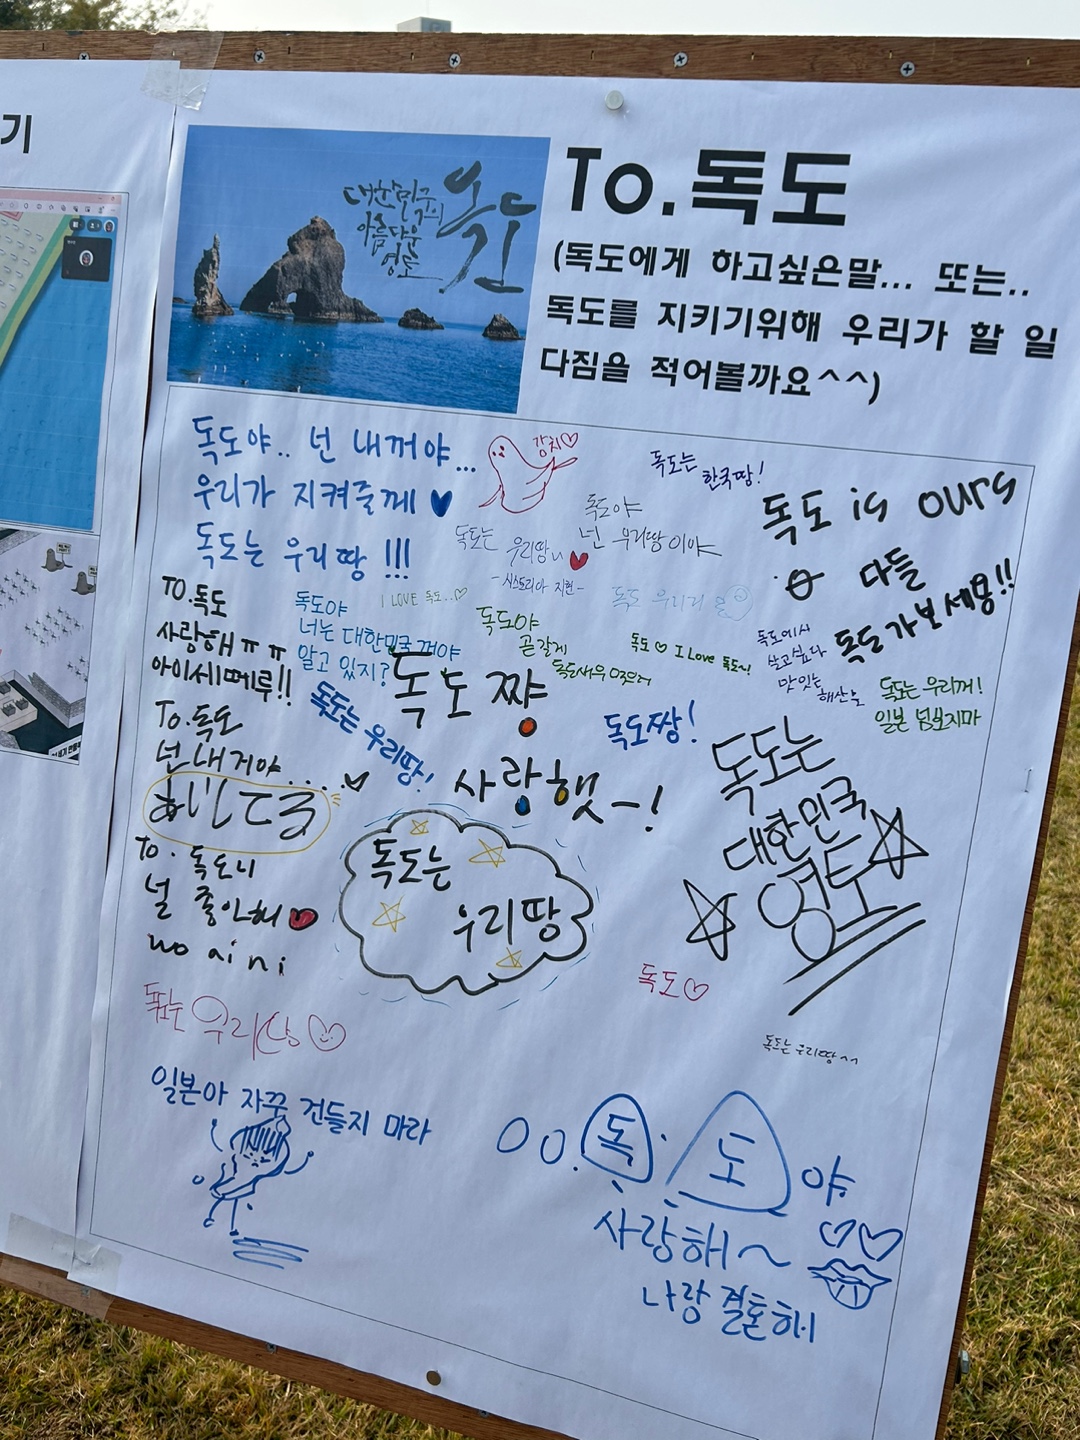 기
대한민국의
아름다운
영토
독도
To.독도
(독도에게 하고싶은말... 또는..
독도를 지키기위해 우리가 할 일
다짐을 적어볼까요^^)
독도야.. 넌 내꺼야...
우리가 지켜줄께 ♥
독도는 우리땅 !!!
강치♡
독도는
한국땅!
독도 is ours
다들
독도가보세용!!
독도야
넌 우리땅이야
독도는 우리땅
TO.독도
사랑해ㅠㅠ
아이시떼루!!
독도야
너는 대한민국 꺼야
알고 있지?
I LOVE 독도..♡
독도야
곧갈게
독도 우리
독도 ♡ I Love 독도~!
독도에서
살고싶다
맛있는
해산물
독도는 우리꺼!
일본 넘보지마
독도 쨩
사랑햇~!
독도는 우리땅!
독도짱!
To.독도
넌 내거야...
あいしてる
To. 독도니
널 좋아해 ♥
wo ai ni
독도는
우리땅
독도는
대한민국
영토
독도♡
독도는 우리땅^^
일본아 자꾸 건들지 마라
OO.독.도야
사랑해~
나랑 결혼해